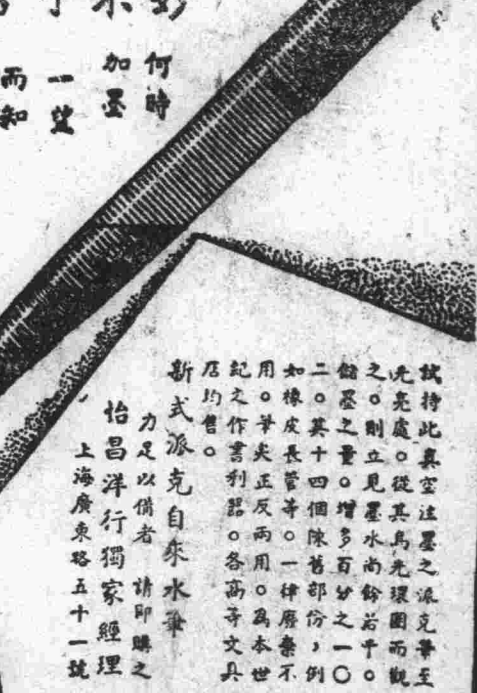 何時
加墨
一望
而知
試持此真空注墨之派克筆至
光亮處。從其光環圈而觀
之。則立見墨水尚餘若干。
儲墨之量。增多百分之一〇
二。其十四個陳舊部份，例
如橡皮長管等。一律廢棄不
用。筆尖正反兩用。爲本世
記之作書利器。各高等文具
店均售。
新式派克自來水筆
力足以備者 請即購之
怡昌洋行獨家經理
上海廣東路五十一號